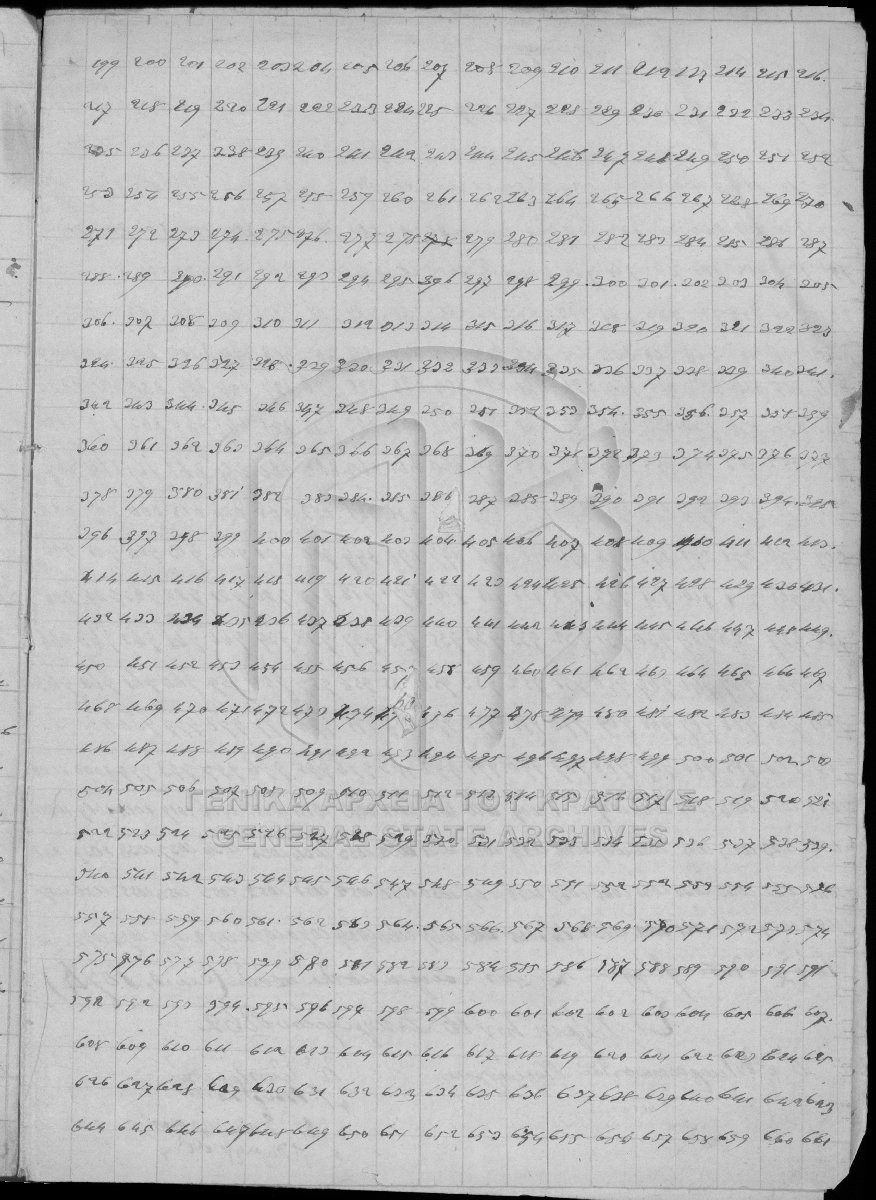 199 200 201 202 203 204 205 206 207 208 209 210 211 212 213 214 215 216.
217 218 219 220 221 222 223 224 225 226 227 228 229 230 231 232 233 234.
235 236 237 238 239 240 241 242 243 244 245 246 247 248 249 250 251 252
253 254 255 256 257 258 259 260 261. 262 263 264 265 266 267 268 269 270
271 272 273 274. 275 276. 277 278 279 280 281 282 283 284 285 286 287
288. 289 290. 291 292 293 294 295 396 297 298 299. 300 301. 302 303 304 305
306. 307 308 309 310 311 312 313 314 315 316 317 318 319 320 321 322 323
324. 325 326 327 328. 329 330. 331 332 333 334 335 336 337 338 339 340 341.
342 343 344. 345 346 347 348 349 350 351 352 353 354. 355 356. 357 358 359
360 361 362 363 364 365 366 367 368 369 370 371 372 373 374 375 376 377
378 379 380 381 382 383 384. 385 386 387 388 389 390 391 392 393 394. 395
396 397 398 399 400 401 402 403 404 405 406 407 408 409 410 411 412 413.
414 415 416 417 418 419 420 421 422 423 424 425 426 427 428 429 430 431.
432 433 434 435 436 437 438 439 440 441 442 443 444 445 446 447 448 449.
450 451 452 453 454 455 456 457 458 459 460 461 462 463 464 465 466 467
468 469 470 471 472 473 474 476 477 478 479 480 481 482 483 484 485
486 487 488 489 490 491 492 493 494 495 496 497 498 499 500 501 502 503
504 505 506 507 508 509 510 511 512 513 514 515 516 517 518 519 520 521
522 523 524 525 526 527 528 529 530 531 532 533 534 535 536 537 538 539.
540 541 542 543 544 545 546 547 548 549 550 551 552 552 553 554 555 556
557 558 559 560 561. 562 563 564. 565 566. 567 568 569 570 571 572 573 574
575 576 577 578 579 580 581 582 583 584 585 586 587 588 589 590 591 591
592 592 593 594. 595. 596 597 598 599 600 601 602 602 603 604 605 606 607.
608 609 610 611 612 613 614 615 616 617 618 619 620 621 622 623 624 625
626 627 628 629 630 631 632 633 634 635 636 637 638 639 640 641 642 643
644 645 646 647 648 649 650 651 652 653 654 655 656 657 658 659 660 661
ΓΕΝΙΚΑ ΑΡΧΕΙΑ ΤΟΥ ΚΡΑΤΟΥΣ
GENERAL STATE ARCHIVES